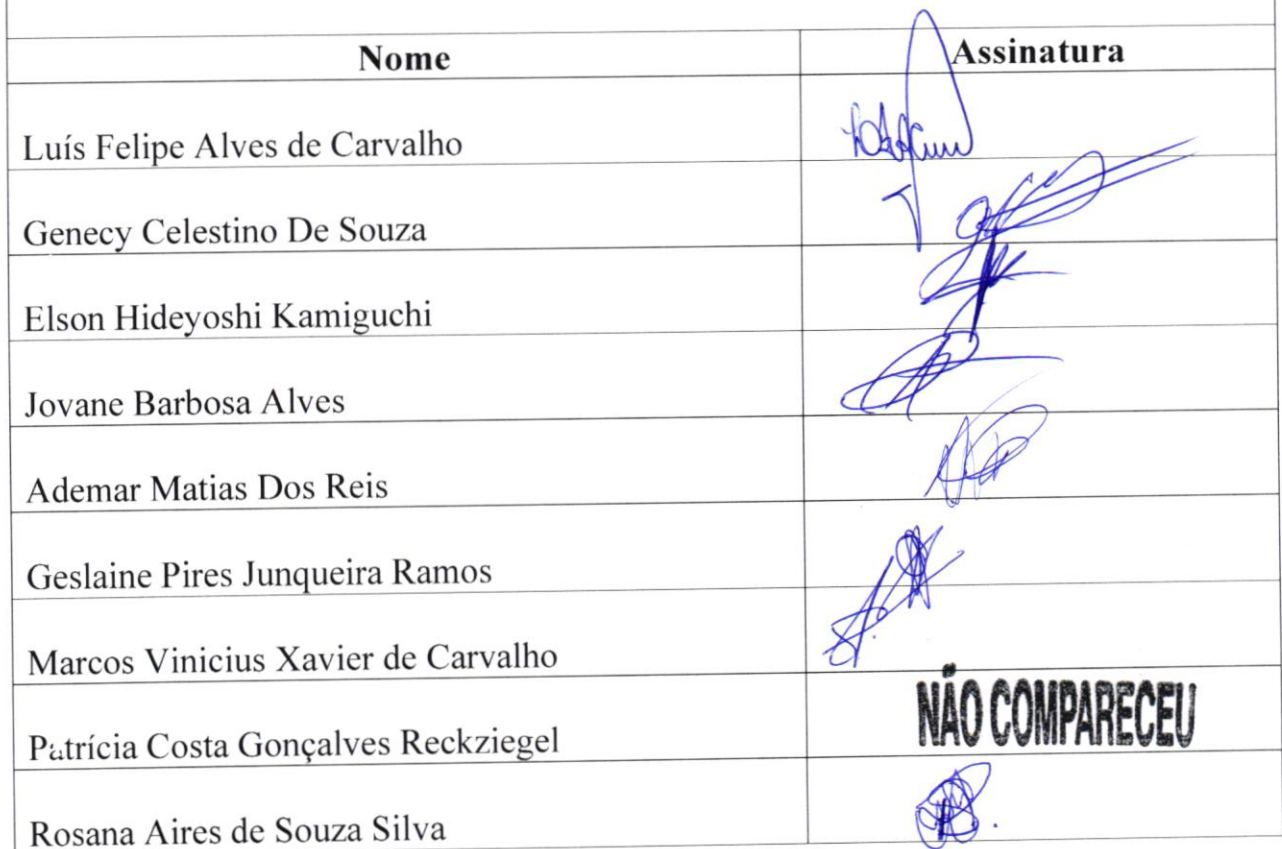 Nome Assinatura
Luís Felipe Alves de Carvalho
Genecy Celestino De Souza
Elson Hideyoshi Kamiguchi
Jovane Barbosa Alves
Ademar Matias Dos Reis
Geslaine Pires Junqueira Ramos
Marcos Vinicius Xavier de Carvalho
Patrícia Costa Gonçalves Reckziegel NÃO COMPARECEU
Rosana Aires de Souza Silva